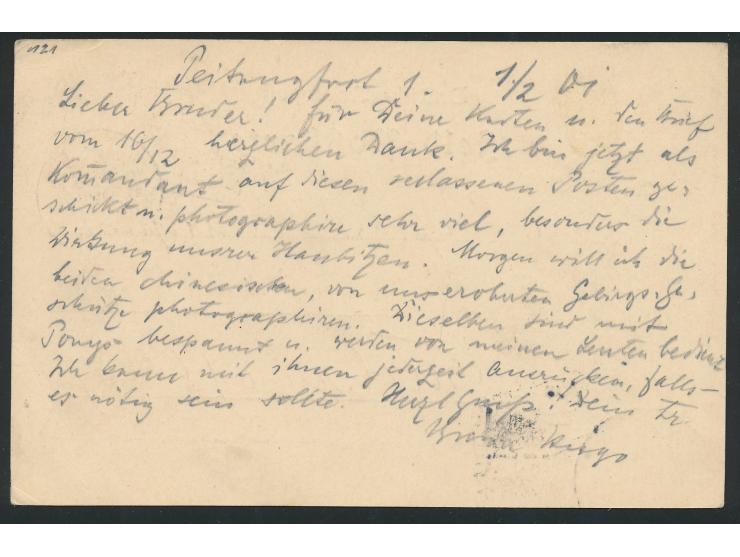 121
Peitangfort 1. 1/2 01
Lieber Bruder! für Deine Karten u. den Brief
vom 16/12 herzlichen Dank. Ich bin jetzt als
Komandant auf diesen verlassenen Posten ge-
schickt u. photographire sehr viel, besonders die
Wirkung unsrer Haubitzen. Morgen will ich die
beiden chinesischen, von uns eroberten Gebirgs-Ge-
schütze photographiren. Dieselben sind mit
Ponys bespannt u. werden von meinen Leuten bedient
Ich kann mit ihnen jederzeit ausrücken, falls
es nötig sein sollte. Herzl Gruß! Dein tr.
Bruder Hugo